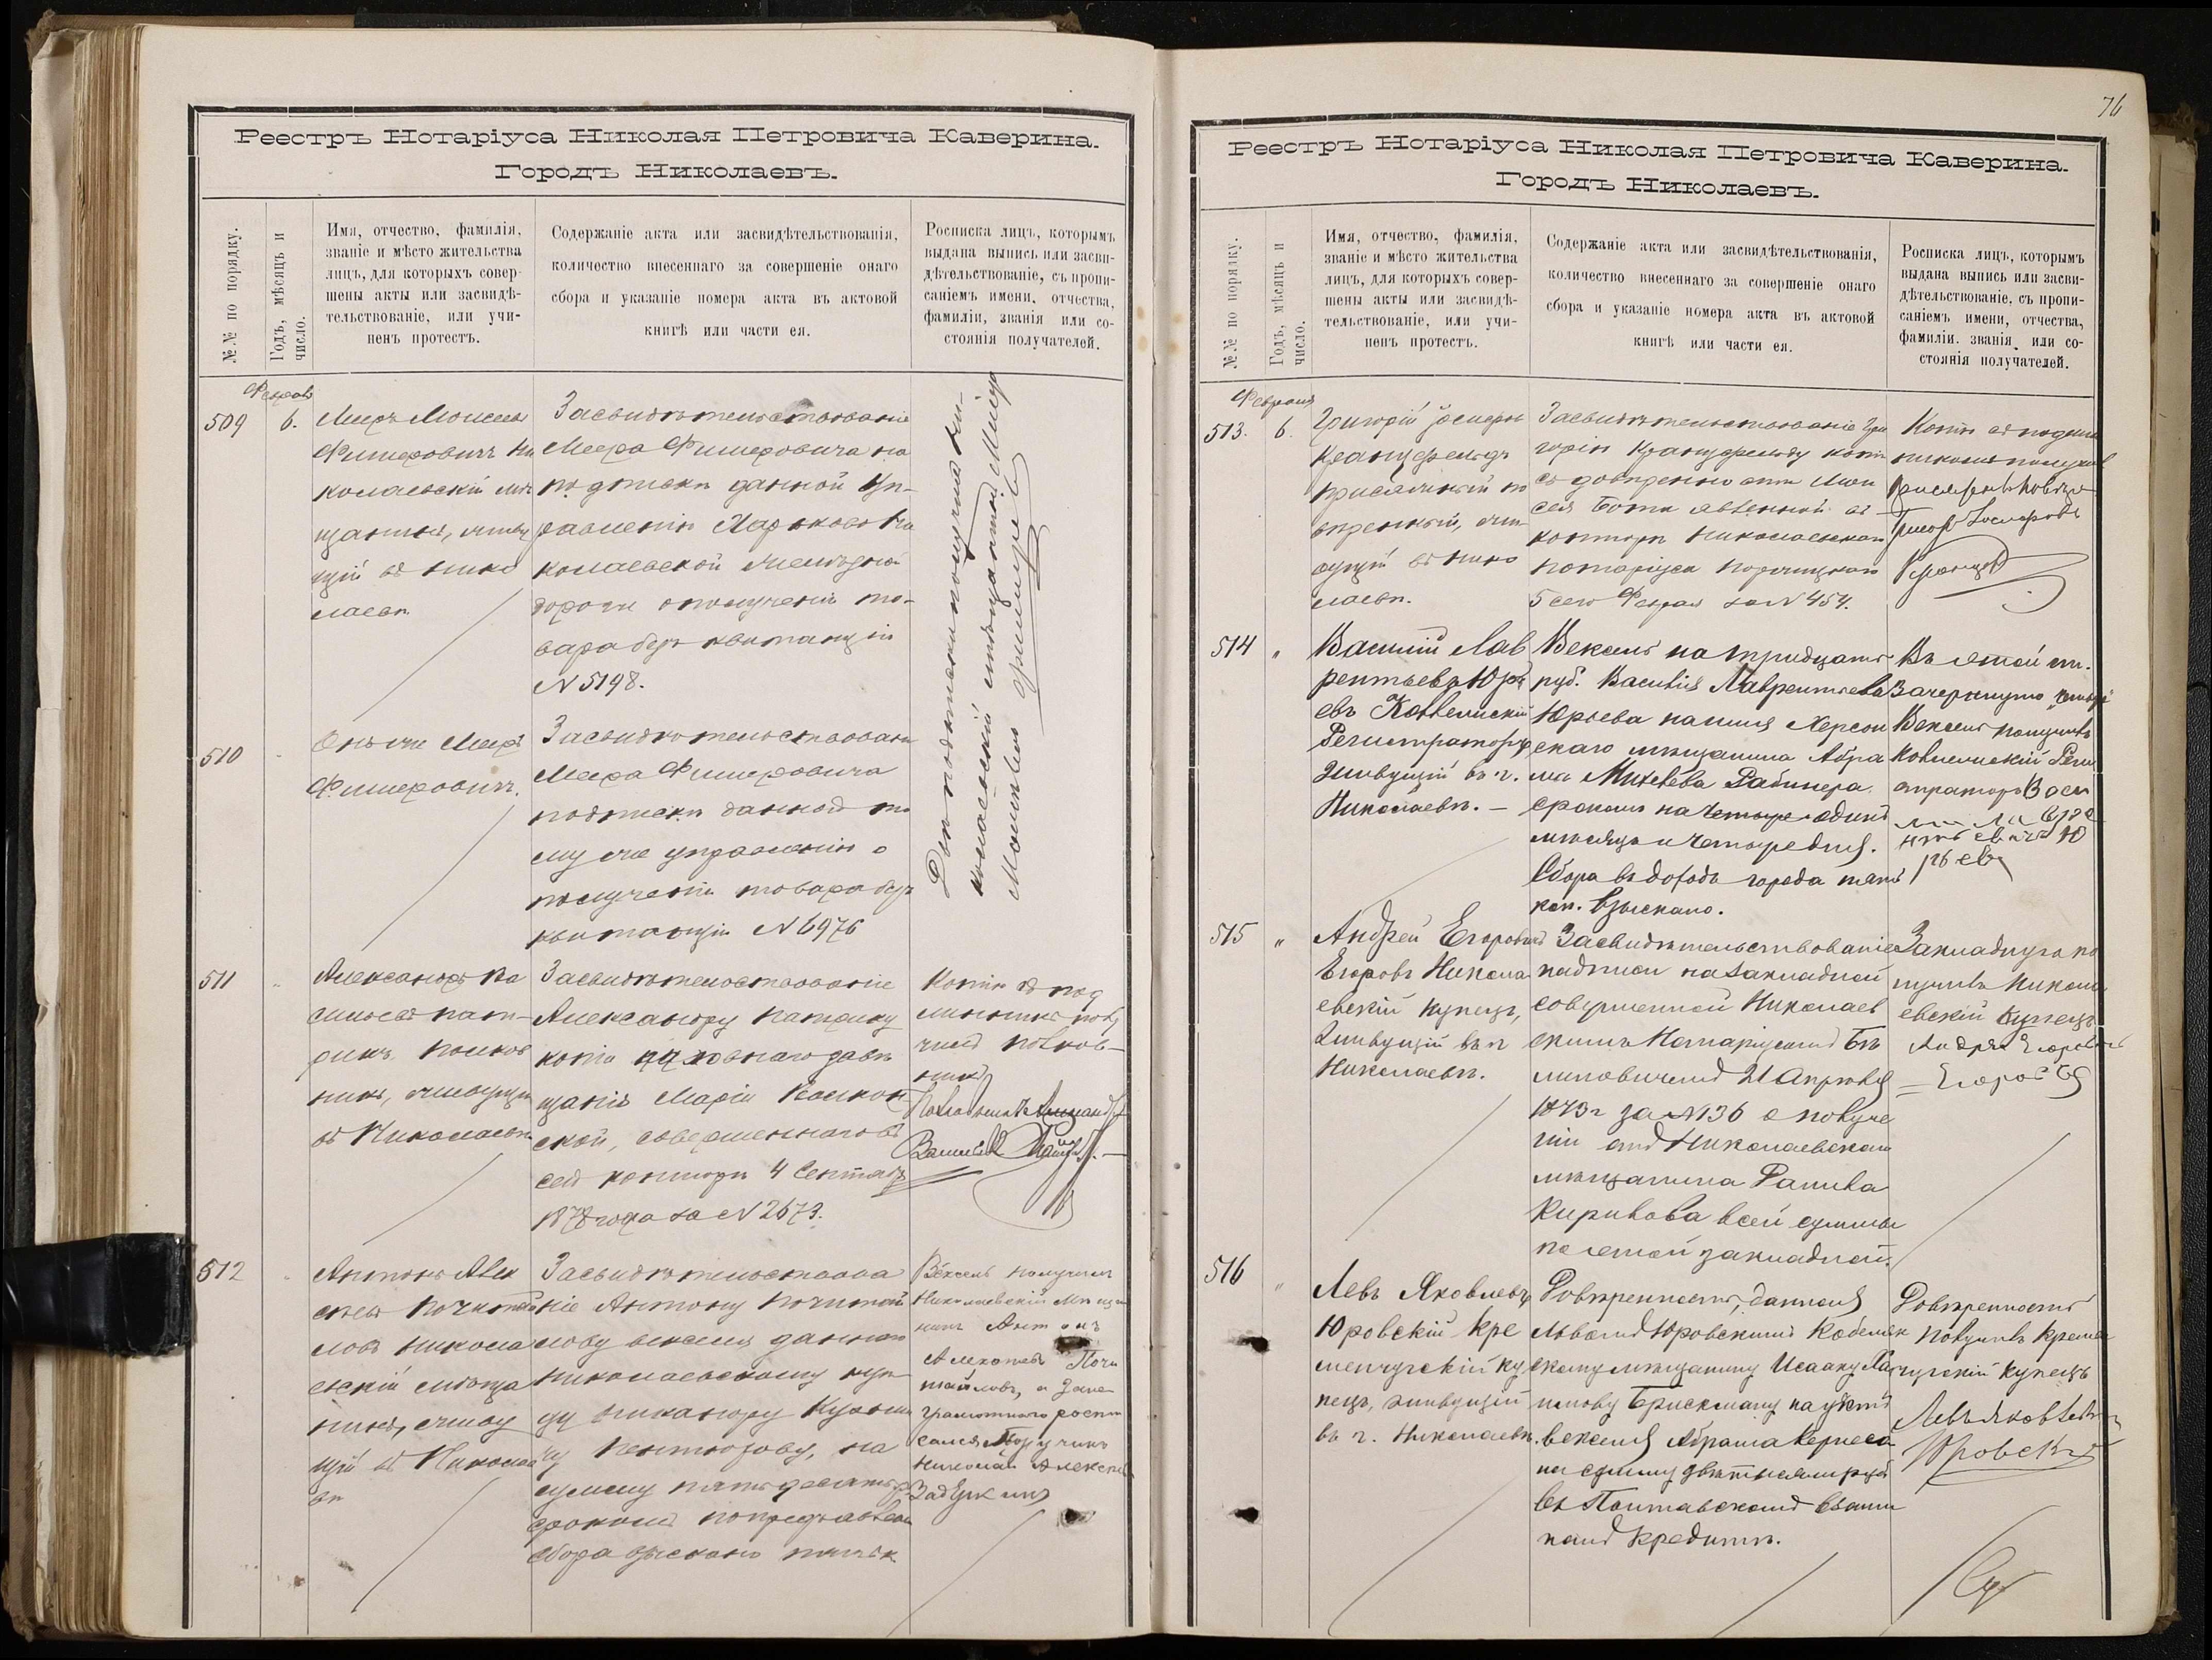 Реестръ Нотаріуса Николая Петровича Каверина.
Городъ Николаевъ.
№.№ по порядку.
Годъ, мѣсяцъ и
число.
Имя, отчество, фамилія,
званіе и мѣсто жительства
лицъ, для которыхъ совер-
шены акты или засвидѣ-
тельствованіе, или учи-
ненъ протестъ.
Содержаніе акта или засвидѣтельствованія,
количество внесеннаго за совершеніе онаго
сбора и указаніе номера акта въ актовой
книгѣ или части ея.
Росписка лицъ, которымъ
выдана выпись или засви-
дѣтельствованіе, съ пропи-
саніемъ имени, отчества,
фамиліи, званія или со-
стоянія получателей.
509
6.
Мееръ Моисеев
Фишеровичъ Ни
колаевскій мѣ
щанинъ, живу
щій въ Нико
лаевѣ
Засвидѣтельствованіе
Меера Фишеровича на
подписки данной Уп-
равленію Харьково Ни
колаевской желѣзной
дороги о полученіи то-
вара безъ квитанціи
N 5198.
Двѣ подписки получилъ Ни-
колаевскій мѣщанинъ Мееръ
510
Онъ же Мееръ
Фишеровичъ.
Засвидѣтельствованіе
Меера Фишеровича
подписки данной то
му же управленію о
полученіи товара безъ
квитанціи N 6976
511
Александръ Ва
сильевъ
полков
никъ, живущій
въ Николаевѣ
Засвидѣтельствованіе
Александру
копіи духовнаго завѣ
щанія Маріи
ской, совершеннаго въ
сей конторѣ 4 Сентяб
1878 года за N 2673.
Копію съ под
линникомъ полу
чилъ полков-
никъ
512
Антонъ Алек
сѣевъ Почитай
ловъ Никола
евскій мѣща
нинъ, живу
щій въ Николае
вѣ
Засвидѣтельствова
ніе Антону Почитай
лову векселя даннаго
Николаевскому куп
цу Никанору Кузьми
чу Пентюхову, на
сумму пятьдесятъ р.
срокомъ попредъявлен
сбора взыскано пять к
Вексель получилъ
Николаевскій Мѣща
нинъ Антонъ
Алексѣевъ Почи
тайловъ, а за не
грамотнаго роспи
сался Поручикъ
Николай Алексѣ
76
Реестръ Нотаріуса Николая Петровича Каверина.
Городъ Николаевъ.
№.№ по порядку.
Годъ, мѣсяцъ и
число.
Имя, отчество, фамилія,
званіе и мѣсто жительства
лицъ, для которыхъ совер-
шены акты или засвидѣ-
тельствованіе, или учи-
ненъ протестъ.
Содержаніе акта или засвидѣтельствованія,
количество внесеннаго за совершеніе онаго
сбора и указаніе номера акта въ актовой
книгѣ или части ея.
Росписка лицъ, которымъ
выдана выпись или засви-
дѣтельствованіе, съ пропи-
саніемъ имени, отчества,
фамиліи, званія или со-
стоянія получателей.
Февраля
513.
6.
Григорій Іосифов
Кранцфельдъ
присяжный по
вѣренный, жи
вущій въ Нико
лаевѣ.
Засвидѣтельствованіе Гри
горію Кранцфельду копіи
съ довѣренности Мои
сея явленной въ
конторѣ Николаевскаго
нотаріуса
5 сего Февраля за N 454.
Копію съ подлин
никомъ получилъ
514
"
Василій Лав
рентьевъ Юрь
евъ Коллежскій
Регистраторъ,
Живущій въ г.
Николаевѣ. -
Вексель на тридцать
руб. Василія Лаврентьева
Юрьева на имя Херсон
скаго мѣщанина Абра
ма Михелева Рабинера
срокомъ на четыре один
мѣсяцъ и четыре дня.
Сбора въ доходъ города пять
коп. взыскано.
Въ этой ст.
Зачеркнуто "четыре"
Вексель получилъ
Коллежскій Реги
страторъ Васи
515
"
Андрей Егоровъ
Егоровъ Никола
евскій купецъ,
Живущій въ г
Николаевѣ.
Засвидѣтельствованіе
надписи на закладной
совершенной Николаев
скимъ Нотаріусомъ Бѣ
линовичемъ 21 Апрѣля
1873 г за N 136 о получе
ніи отъ Николаевскаго
мѣщанина
Кирилова всей суммы
по этой закладной.
Закладную по
лучилъ Никола
евскій Купецъ
Андрей Егоровъ
Егоровъ
516
"
Левъ Яковлевъ
Юровскій Кре
менчугскій ку
пецъ, живущій
въ г. Николаевѣ.
Довѣренность, данная
Львомъ Юровскимъ Кобеляк
скому мѣщанину Исааку Ха
имову Брискману на учетъ
векселя Абрама
на сумму двѣ тысячи руб
въ Полтавскомъ взаим
номъ Кредитѣ.
Довѣренность
получилъ Кремен
чугскій Купецъ
Левъ Яковлевъ
Юровскій